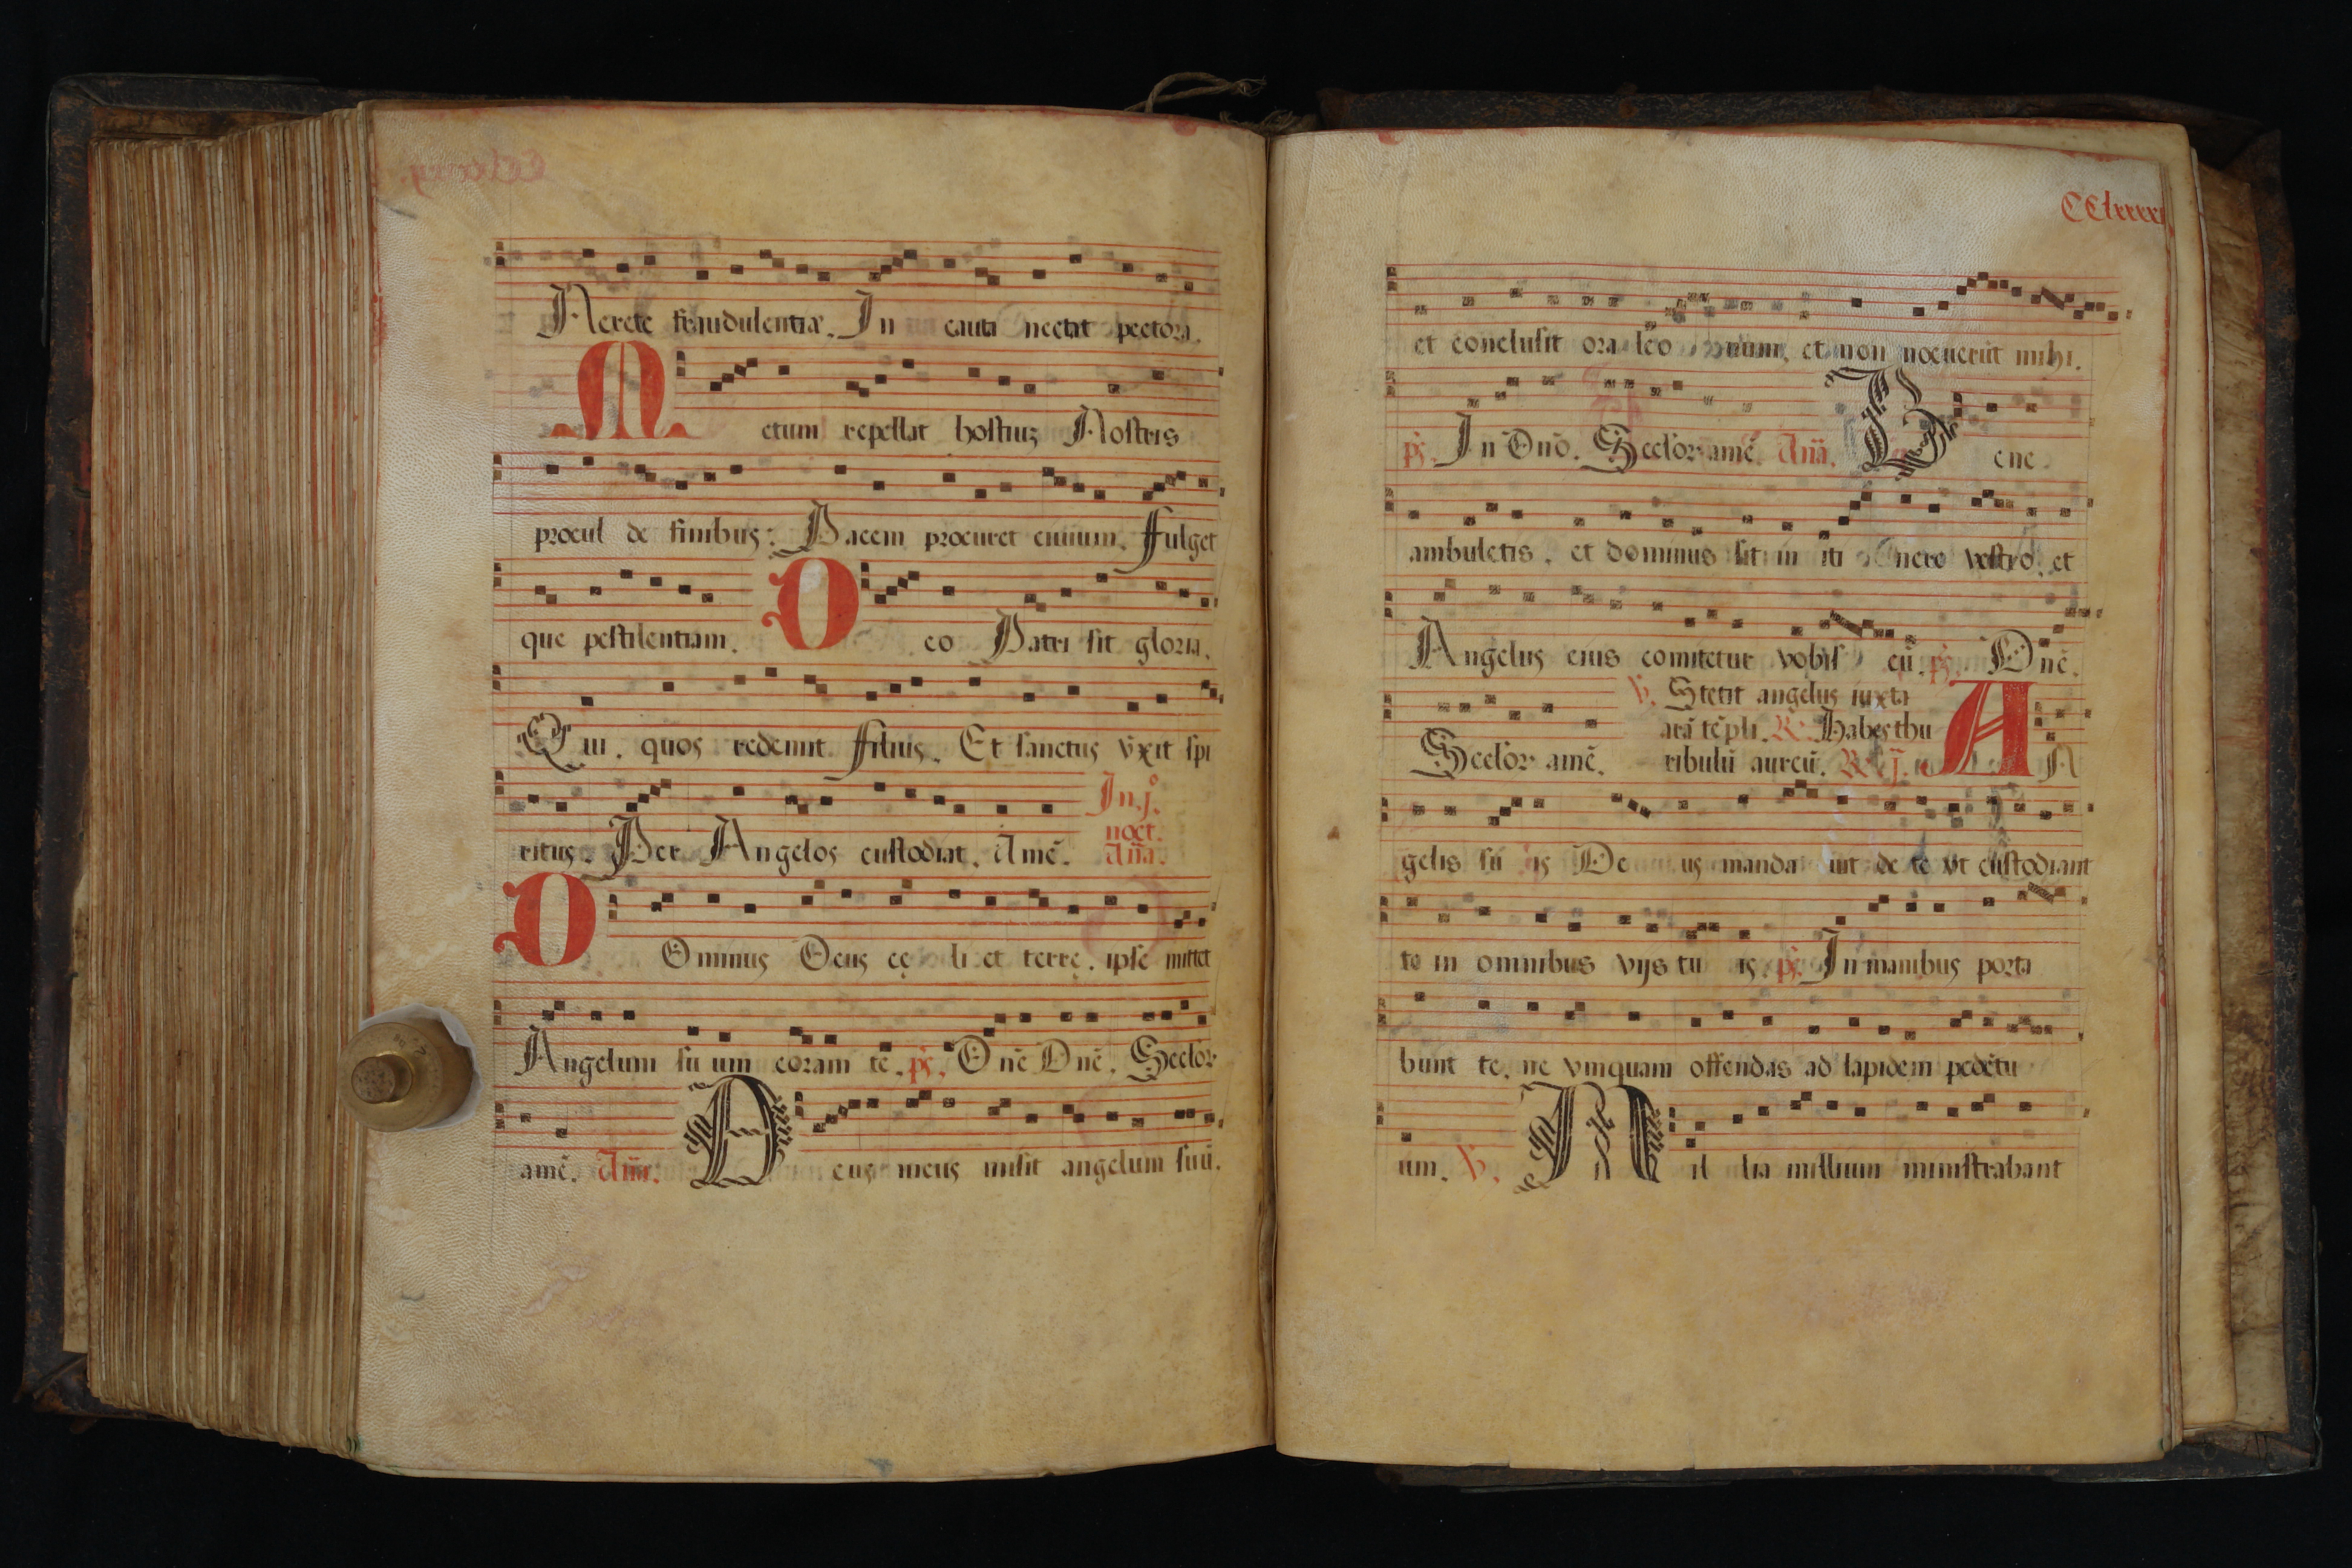 Nerete fraudulentiæ. In cauta nectat pectora.
Metum repellat hostiuʒ Nostris
procul de finibus: Pacem procuret ciuium. Fulget
que pestilentiam. Deo Patri sit gloria.
Qui. quos redemit Filius. Et sanctus vxit spi
ritus. Per Angelos custodiat. Amē.
In j.º
noct.
Añā.
DOminus Deus cęli et terrę. ipse mittet
Angelum suum coram te. ps̄. Dnē Dnē. Seclor
amē. Añā. Deus meus misit angelum suū.
et conclusit ora leonum, et non nocuerūt mihi.
ps̄. In Dnō. Seclor amē. Añā. Bene
ambuletis, et dominus sit in itinere vestro, et
Angelus eius comitetur vobiscū. ps̄. Dnē.
Seclor amē.
℣. Stetit angelus iuxta
arā tēpli. ℟. Habēs thu
ribulū aureū. ℟. j.
AN
gelis suis Deus mandauit de te vt custodiant
te in omnibus vijs tuis. ps̄. In manibus porta
bunt te, ne vnquam offendas ad lapidem pedētu
um. ℣. Millia millium ministrabant